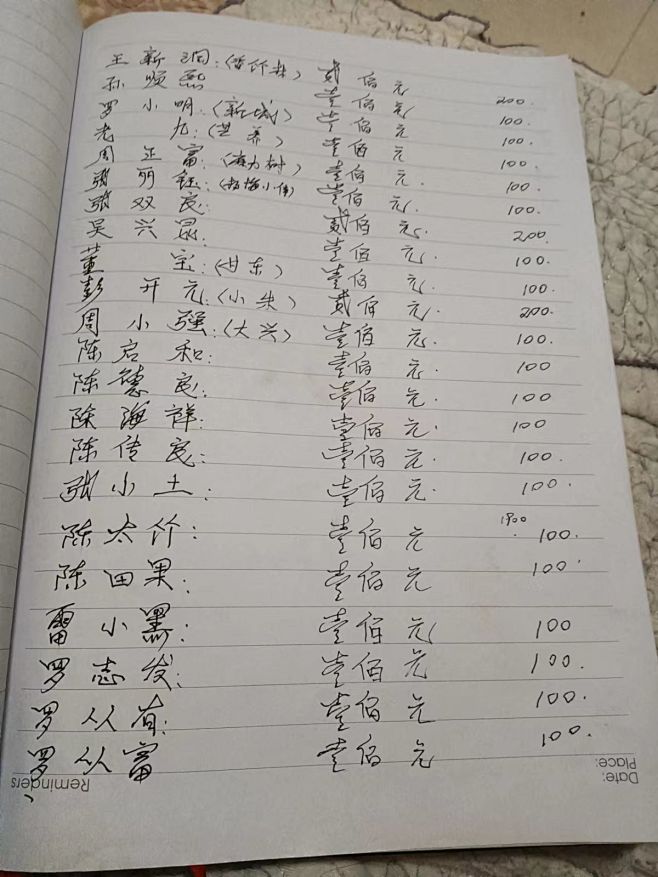 王新洞:(香竹林) 贰佰元 200.
孙顺熙 壹佰元 100.
罗小明:(新城) 壹佰元 100.
老九:(芒养) 壹佰元 100.
周正富:(麻力树) 壹佰元. 100.
张丽钰:(杨梅小伟) 壹佰元. 100.
张双良 贰佰元. 200.
吴兴昆. 壹佰元. 100.
董宝:(甘东) 壹佰元. 100.
彭开元:(小朱) 贰佰元. 200.
周小强:(大兴) 壹佰元. 100.
陈启和: 壹佰元. 100
陈德良: 壹佰元. 100
陈海祥: 壹佰元. 100
陈传良: 壹佰元. 100.
张小土: 壹佰元. 100.
陈太竹: 壹佰元 1900 100.
陈田果: 壹佰元 100.
雷小黑: 壹佰元 100
罗志发: 壹佰元 100.
罗从有: 壹佰元 100.
罗从富 壹佰元 100.
Reminders
Date:
Place: